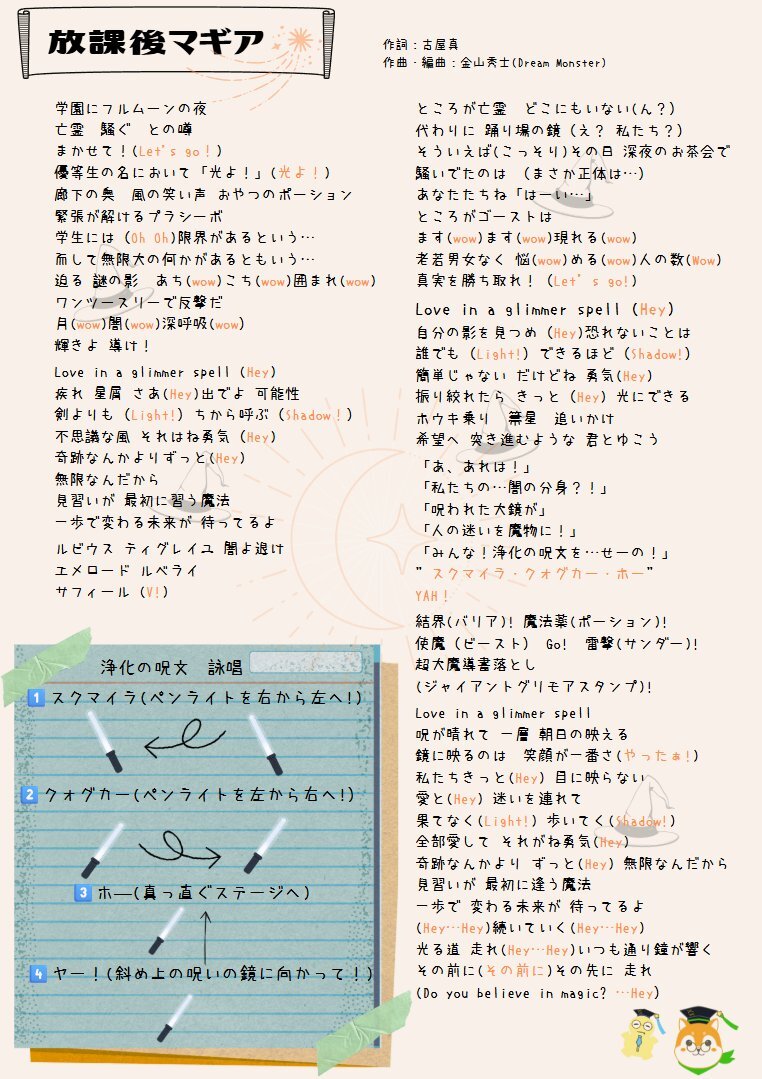 放課後マギア
作詞：古屋真
作曲・編曲：金山秀士(Dream Monster)
学園にフルムーンの夜
亡霊　騒ぐ　との噂
まかせて！(Let's go！)
優等生の名において「光よ！」(光よ！)
廊下の奥　風の笑い声 おやつのポーション
緊張が解けるプラシーボ
学生には (Oh Oh)限界があるという…
而して無限大の何かがあるともいう…
迫る 謎の影　あち(wow)こち(wow)囲まれ(wow)
ワンツースリーで反撃だ
月(wow)闇(wow)深呼吸(wow)
輝きよ 導け！
Love in a glimmer spell (Hey)
疾れ 星屑 さあ(Hey)出でよ 可能性
剣よりも (Light!) ちから呼ぶ (Shadow！)
不思議な風 それはね勇気 (Hey)
奇跡なんかよりずっと(Hey)
無限なんだから
見習いが 最初に習う魔法
一歩で変わる未来が 待ってるよ
ルビウス ティグレイユ 闇よ退け
エメロード ルベライ
サフィール (V!)
ところが亡霊　どこにもいない(ん？)
代わりに 踊り場の鏡 (え？ 私たち？)
そういえば(こっそり)その日 深夜のお茶会で
騒いでたのは　(まさか正体は…)
あなたたちね「はーい…」
ところがゴーストは
ます(wow)ます(wow)現れる(wow)
老若男女なく 悩(wow)める(wow)人の数(Wow)
真実を勝ち取れ！ (Let's go!)
Love in a glimmer spell (Hey)
自分の影を見つめ (Hey)恐れないことは
誰でも (Light!) できるほど (Shadow!)
簡単じゃない だけどね 勇気(Hey)
振り絞れたら きっと (Hey) 光にできる
ホウキ乗り　箒星　追いかけ
希望へ 突き進むような 君とゆこう
「あ、あれは！」
「私たちの…闇の分身？！」
「呪われた大鏡が」
「人の迷いを魔物に！」
「みんな！浄化の呪文を…せーの！」
"スクマイラ・クォグカー・ホー"
YAH！
結界(バリア)! 魔法薬(ポーション)!
使魔 (ビースト)　Go!　雷撃(サンダー)!
超大魔導書落とし
(ジャイアントグリモアスタンプ)!
Love in a glimmer spell
呪が晴れて 一層 朝日の映える
鏡に映るのは　笑顔が一番さ(やったぁ!)
私たちきっと(Hey) 目に映らない
愛と(Hey) 迷いを連れて
果てなく(Light!) 歩いてく(Shadow!)
全部愛して それがね勇気(Hey)
奇跡なんかより ずっと(Hey) 無限なんだから
見習いが 最初に逢う魔法
一歩で 変わる未来が 待ってるよ
(Hey…Hey)続いていく(Hey…Hey)
光る道 走れ(Hey…Hey)いつも通り鐘が響く
その前に(その前に)その先に 走れ
(Do you believe in magic? …Hey)
浄化の呪文　詠唱
1 スクマイラ(ペンライトを右から左へ!)
2 クォグカー(ペンライトを左から右へ!)
3 ホ—(真っ直ぐステージへ)
4 ヤー！(斜め上の呪いの鏡に向かって！)